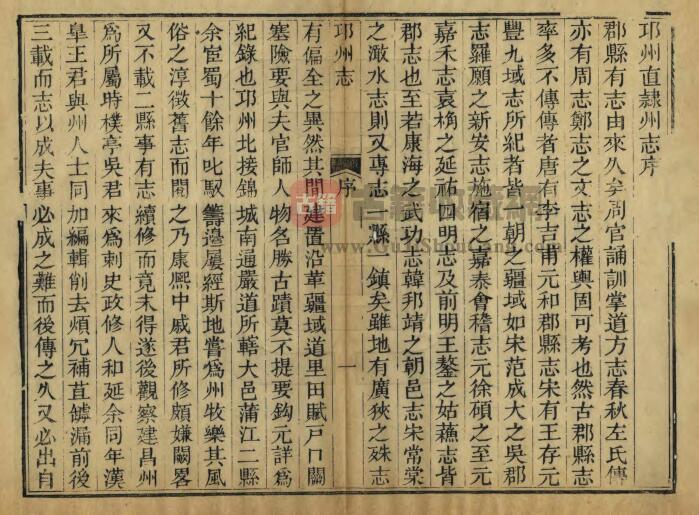 邛州直隸州志序
郡縣有志由來久矣周官誦訓掌道方志春秋左氏傳
亦有周志鄭志之文志之權輿固可考也然古郡縣志
率多不傳傳者唐有李吉甫元和郡縣志宋有王存元
豐九域志所紀者皆一朝之疆域如宋范成大之吳郡
志羅願之新安志施宿之嘉泰會稽志元徐碩之至元
嘉禾志袁桷之延祐四明志及前明王鏊之姑蘇志皆
郡志也至若康海之武功志韓邦靖之朝邑志宋常棠
之澉水志則又專志一縣一鎮矣雖地有廣狹之殊志
邛州志
序
一
有偏全之異然其間建置沿革疆域道里田賦戸口關
塞險要與夫官師人物名勝古蹟莫不提要鈎元詳為
紀錄也邛州北接錦城南通嚴道所轄大邑蒲江二縣
余宦蜀十餘年叱馭籌邊屢經斯地嘗為州牧樂其風
俗之淳徵舊志而閱之乃康熙中戚君所修頗嫌闕畧
又不載二縣事有志續修而竟未得遂後觀察建昌州
為所屬時樸亭吳君來為刺史政修人和延余同年漢
臯王君與州人士同加編輯削去煩冗補苴罅漏前後
三載而志以成夫事必成之難而後傳之久又必出自
古籍
www.GuJiShouCang.com